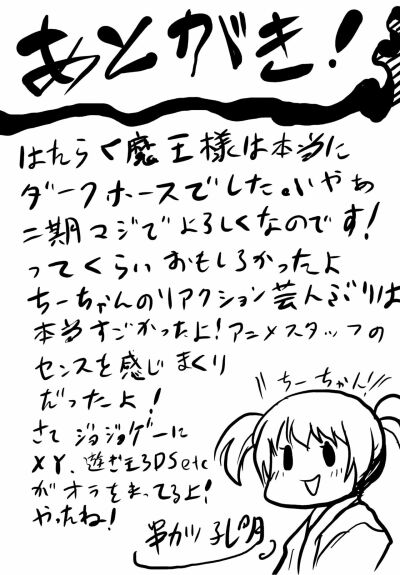 あとがき!
はたらく魔王様は本当に
ダークホースでした。いやぁ
二期マジでよろしくなのです!
ってくらいおもしろかったよ
ちーちゃんのリアクション芸人ぶりは
本当すごかったよ!アニメスタッフの
センスを感じまくり
だったよ!
ちーちゃん!
さてジョジョゲーに
XY、遊戯王3DSetc
がオラをまってるよ!
やったね!
串カツ孔明